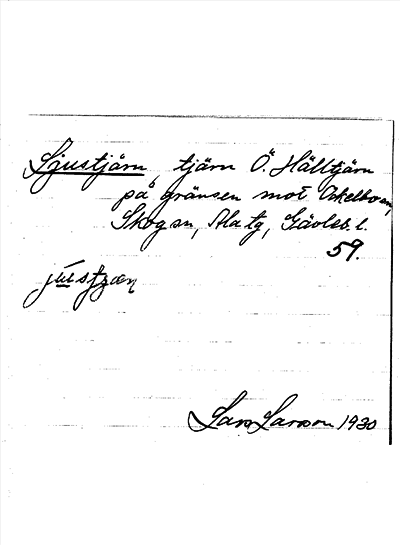 Ljustjärn, tjärn Ö. Hälltjärn
på gränsen mot Ockelbo sn,
Skog sn, Ala tg, Gävleb. l.
59.
Lars Larsson 1930